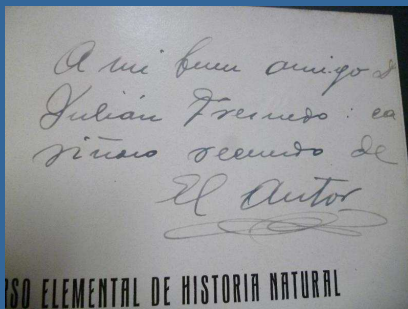 A mi buen amigo d
Julián Fresnedo: ca
riñoso recuerdo de
El Autor
RSO ELEMENTAL DE HISTORIA NATURAL